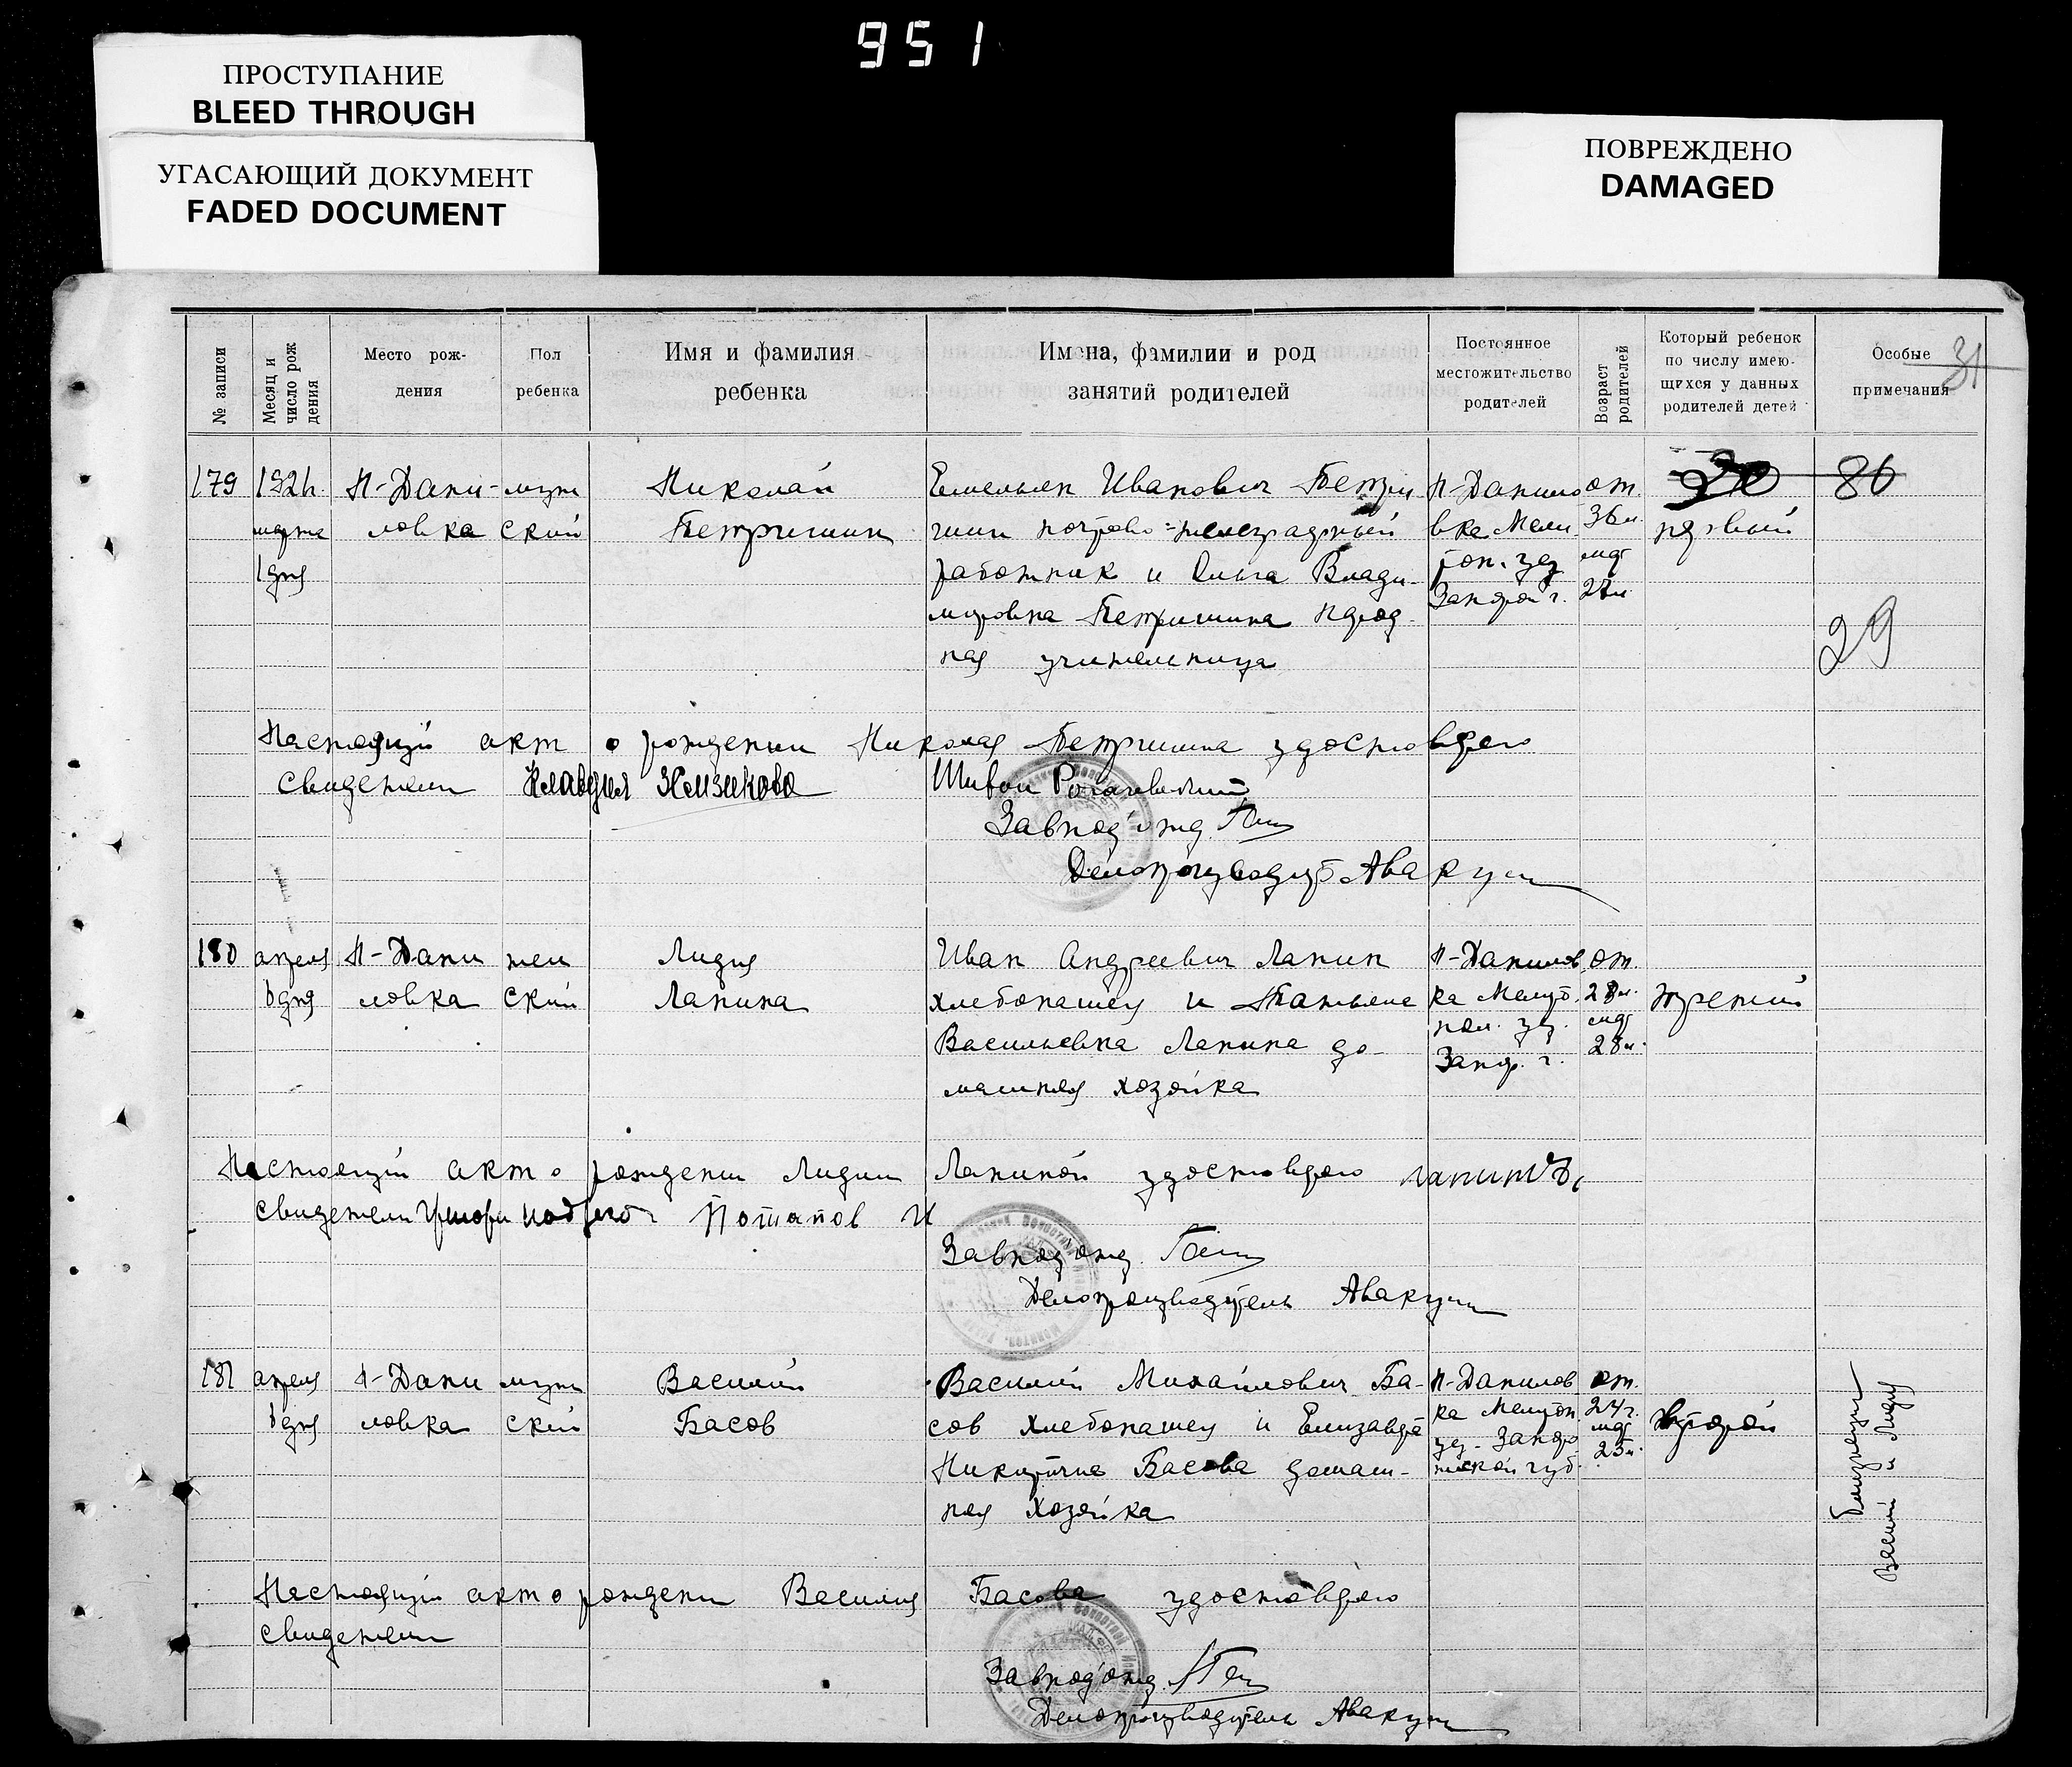 951
ПРОСТУПАНИЕ
BLEED THROUGH
УГАСАЮЩИЙ ДОКУМЕНТ
FADED DOCUMENT
ПОВРЕЖДЕНО
DAMAGED
№ записи
Месяц и число рож дения
Место рож-
дения
Пол
ребенка
Имя и фамилия
ребенка
Имена, фамилии и род
занятий родителей
Постоянное
местожительство
родителей
Возраст родителей
Который ребенок
по числу имею-
щихся у данных
родителей детей
Особые
примечания
31
179
марта
1 дня
Н-Дани-
ловка
муж
ский
Николай
Петришин
Емельян Иванович Петри
шин почтово-телеграфный
работник и Ольга Влади-
мировна Петришина народ
ная учительница
Н-Данило
вка Мели
топ. уез
Запорож г.
от.
36 л.
мат
27 л.
первый
86
29
Настоящий акт о рождении Николая Петришина удостоверяю
свидетели Клавдия
Завподотд.
Делопроизвод Авакум
180
апреля
6 дня
Н-Дани
ловка
жен
ский
Лидия
Лапина
Иван Андреевич Лапин
хлебопашец и Татьяна
Васильевна Лапина до-
машняя хозяйка
Н-Данилов
ка Мелит.
пол. уез.
Запор. г.
от.
28 л.
мат
28 л.
третий
Настоящий акт о рождении Лидии Лапиной удостоверяю
свидетели Потапов И
Завподотд.
Делопроизводитель Авакум
181
апреля
6 дня
Н-Дани
ловка
муж
ский
Василий
Басов
Василий Михайлович Ба-
сов хлебопашец и Елизавета
Никитична Басова домаш-
няя хозяйка
Н-Данилов
ка Мелитоп
уез. Запоро
жской губ.
от.
24 г.
мат
25 л.
второй
Близнецы
Василий и Лидия
Настоящий акт о рождении Василия Басова удостоверяю
свидетели
Завподотд.
Делопроизводитель Авакум